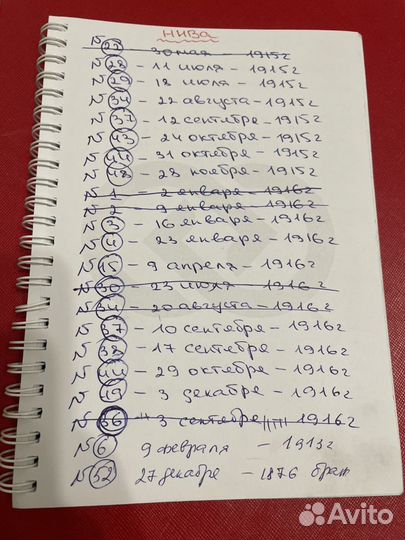 НИВА
№ 22 - 30 мая - 1915г
№ 28 - 11 июля - 1915г
№ 29 - 18 июля - 1915г
№ 34 - 22 августа - 1915г
№ 37 - 12 сентября - 1915г
№ 43 - 24 октября - 1915г
№ 44 - 31 октября - 1915г
№ 48 - 28 ноября - 1915г
№ 1 - 2 января - 1916г
№ 2 - 9 января - 1916г
№ 3 - 16 января - 1916г
№ 4 - 23 января - 1916г
№ 15 - 9 апреля - 1916г
№ 30 - 23 июля - 1916г
№ 34 - 20 августа - 1916г
№ 37 - 10 сентября - 1916г
№ 38 - 17 сентября - 1916г
№ 44 - 29 октября - 1916г
№ 49 - 3 декабря - 1916г
№ 36 - 3 сентября - 1916г
№ 6 9 февраля - 1913г
№ 52 27 декабря - 1876 брак
Avito